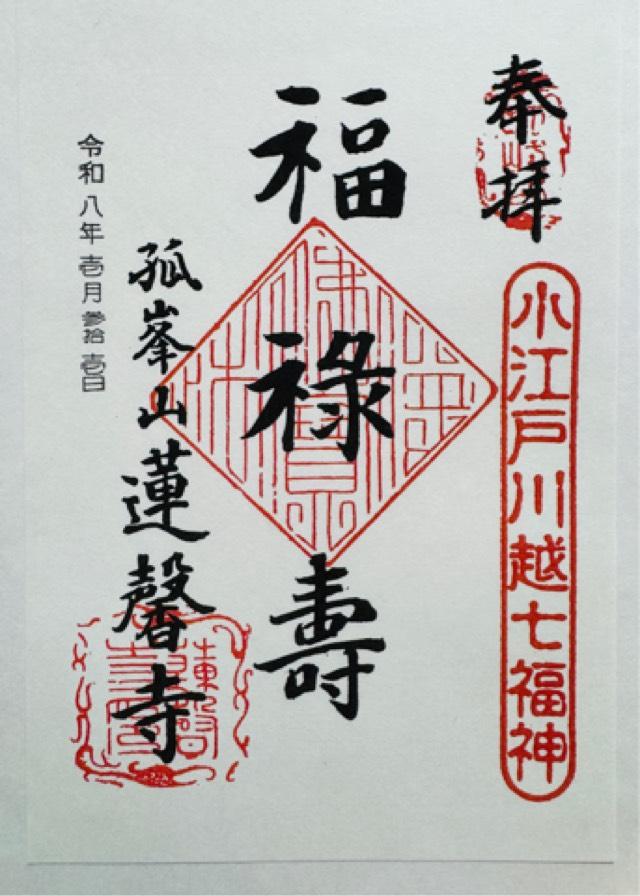 奉拝
小江戸川越七福神
福禄寿
孤峯山蓮馨寺
令和八年壱月参拾壱日